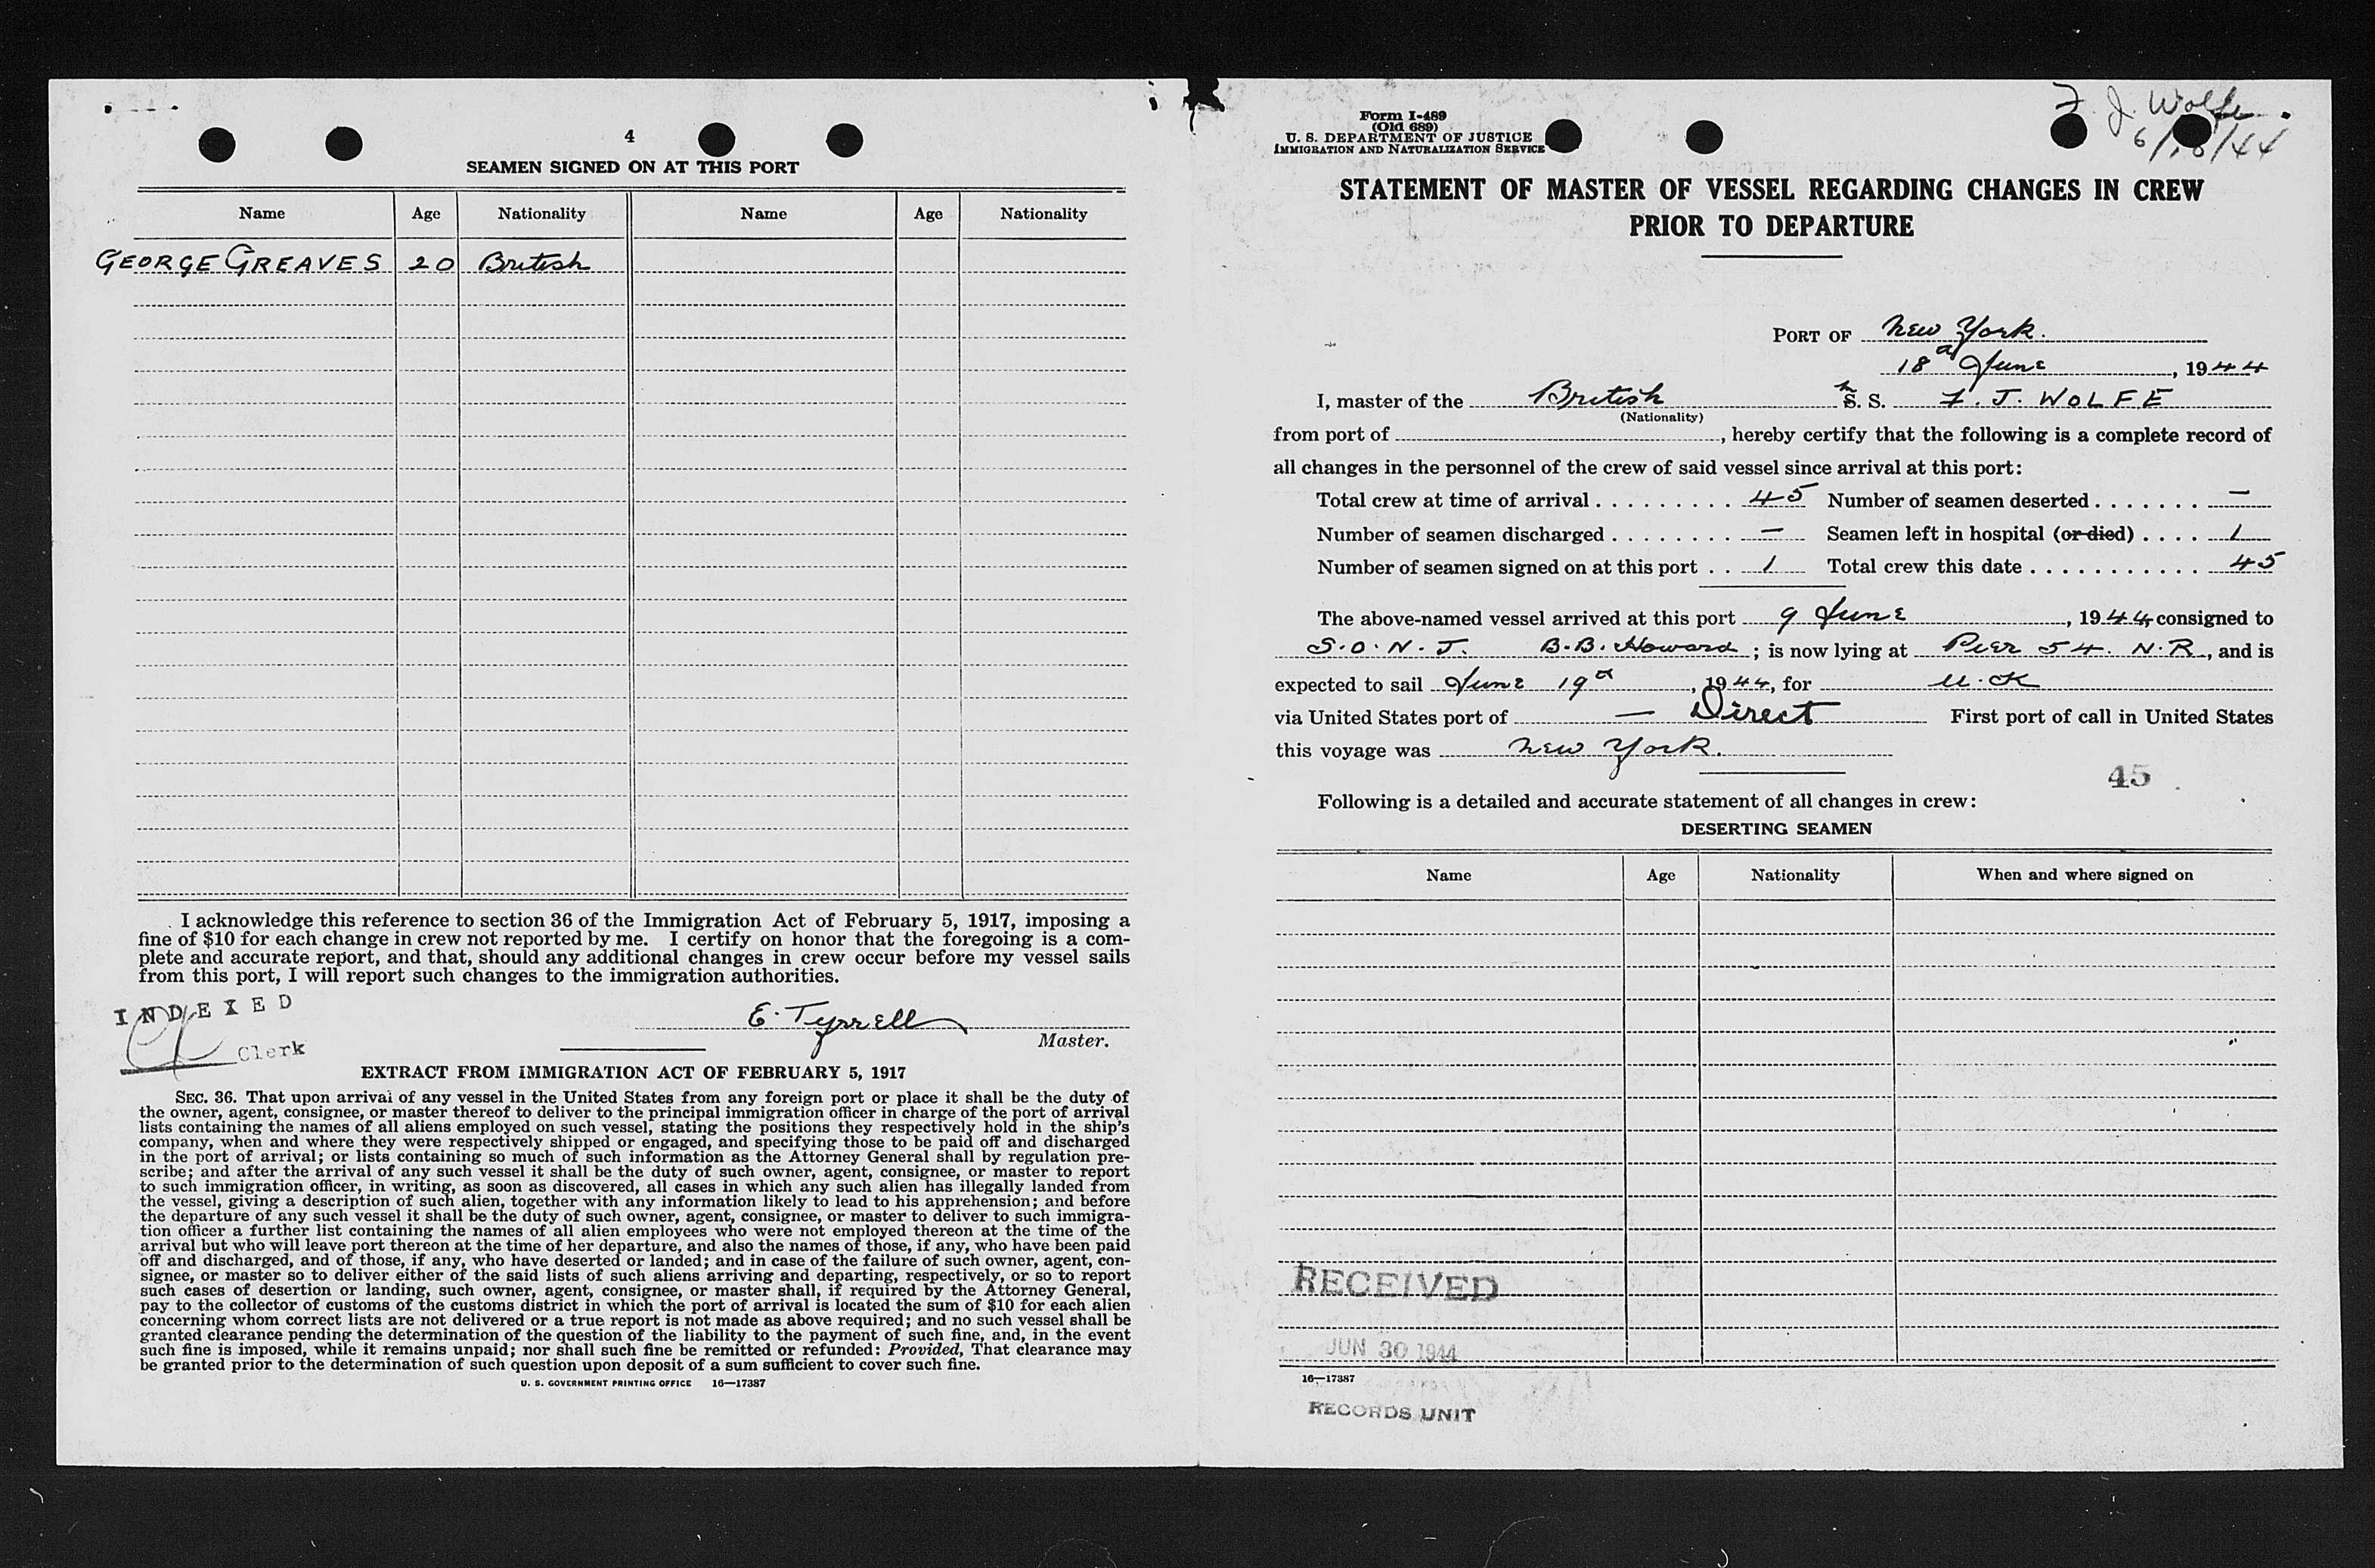 4
SEAMEN SIGNED ON AT THIS PORT
Name Age Nationality Name Age Nationality
GEORGE GREAVES 20 British
I acknowledge this reference to section 36 of the Immigration Act of February 5, 1917, imposing a
fine of $10 for each change in crew not reported by me. I certify on honor that the foregoing is a com-
plete and accurate report, and that, should any additional changes in crew occur before my vessel sails
from this port, I will report such changes to the immigration authorities.
INDEXED
E. Tyrrell
Clerk
Master.
EXTRACT FROM IMMIGRATION ACT OF FEBRUARY 5, 1917
SEC. 36. That upon arrival of any vessel in the United States from any foreign port or place it shall be the duty of
the owner, agent, consignee, or master thereof to deliver to the principal immigration officer in charge of the port of arrival
lists containing the names of all aliens employed on such vessel, stating the positions they respectively hold in the ship's
company, when and where they were respectively shipped or engaged, and specifying those to be paid off and discharged
in the port of arrival; or lists containing so much of such information as the Attorney General shall by regulation pre-
scribe; and after the arrival of any such vessel it shall be the duty of such owner, agent, consignee, or master to report
to such immigration officer, in writing, as soon as discovered, all cases in which any such alien has illegally landed from
the vessel, giving a description of such alien, together with any information likely to lead to his apprehension; and before
the departure of any such vessel it shall be the duty of such owner, agent, consignee, or master to deliver to such immigra-
tion officer a further list containing the names of all alien employees who were not employed thereon at the time of the
arrival but who will leave port thereon at the time of her departure, and also the names of those, if any, who have been paid
off and discharged, and of those, if any, who have deserted or landed; and in case of the failure of such owner, agent, con-
signee, or master so to deliver either of the said lists of such aliens arriving and departing, respectively, or so to report
such cases of desertion or landing, such owner, agent, consignee, or master shall, if required by the Attorney General,
pay to the collector of customs of the customs district in which the port of arrival is located the sum of $10 for each alien
concerning whom correct lists are not delivered or a true report is not made as above required; and no such vessel shall be
granted clearance pending the determination of the question of the liability to the payment of such fine, and, in the event
such fine is imposed, while it remains unpaid; nor shall such fine be remitted or refunded: Provided, That clearance may
be granted prior to the determination of such question upon deposit of a sum sufficient to cover such fine.
U. S. GOVERNMENT PRINTING OFFICE 16—17387
Form I-489
(Old 689)
U. S. DEPARTMENT OF JUSTICE
IMMIGRATION AND NATURALIZATION SERVICE
F. J. Wolfe
6/18/44
STATEMENT OF MASTER OF VESSEL REGARDING CHANGES IN CREW
PRIOR TO DEPARTURE
PORT OF New York.
18 June, 1944
I, master of the British S. S. F. J. WOLFE
(Nationality)
from port of , hereby certify that the following is a complete record of
all changes in the personnel of the crew of said vessel since arrival at this port:
Total crew at time of arrival 45 Number of seamen deserted —
Number of seamen discharged — Seamen left in hospital (or died) 1
Number of seamen signed on at this port 1 Total crew this date 45
The above-named vessel arrived at this port 9 June, 1944, consigned to
S.O.N.J. B.B. Howard; is now lying at Pier 54. N.R., and is
expected to sail June 19, 1944, for U.K
via United States port of — Direct First port of call in United States
this voyage was New York.
45
Following is a detailed and accurate statement of all changes in crew:
DESERTING SEAMEN
Name Age Nationality When and where signed on
RECEIVED
JUN 30 1944
16—17387
RECORDS UNIT